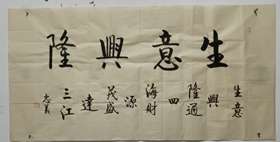 生意興隆
生意
興
隆通
四
海財
源
茂盛
達
三江